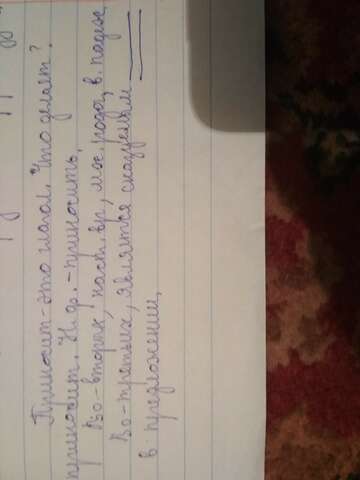 Приносит - это глагол. Что делает?
приносит. Н.ф. - приносить.
Во-вторых, наст. вр., мж. рода, в. падеже
Во-третьих, является сказуемым
в предложении.